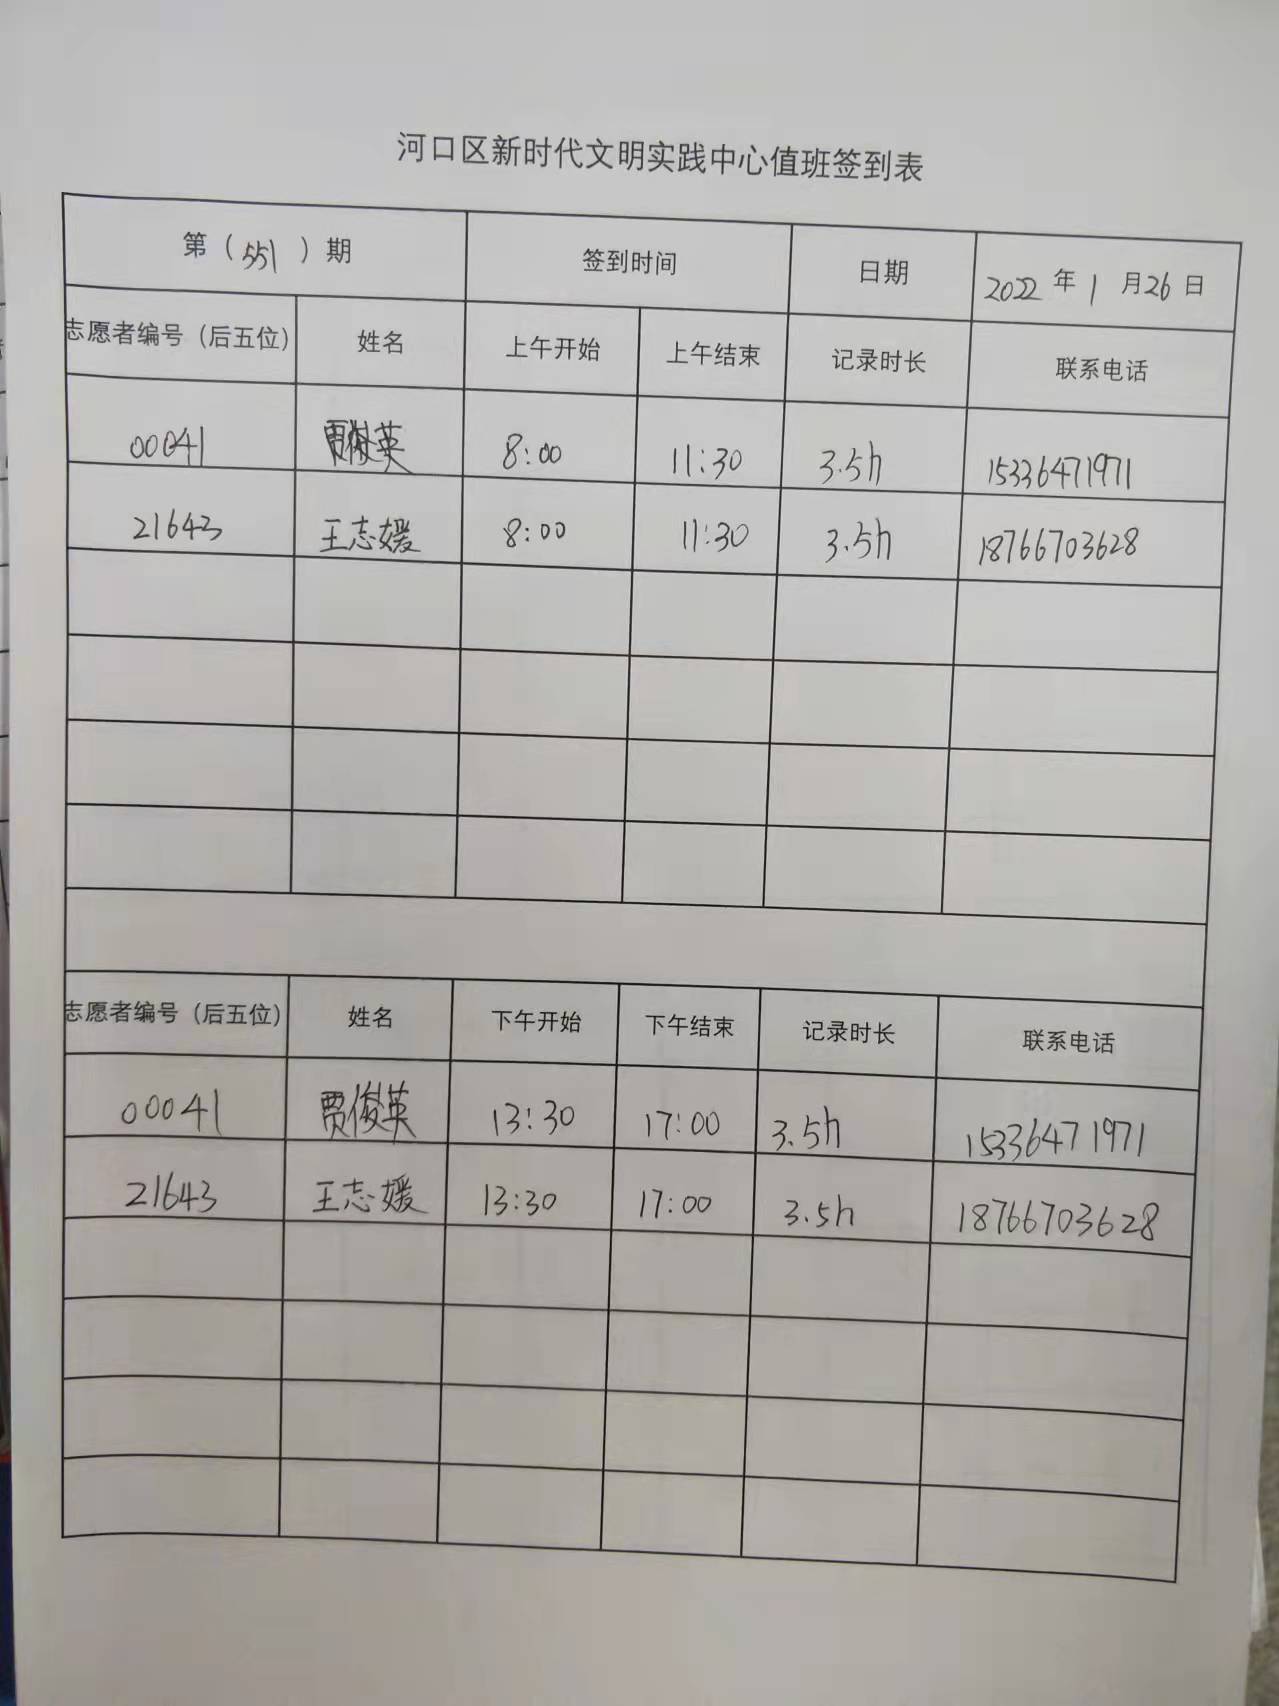 河口区新时代文明实践中心值班签到表
第（551）期 签到时间 日期 2022年1月26日
志愿者编号（后五位） 姓名 上午开始 上午结束 记录时长 联系电话
00041 贾俊英 8:00 11:30 3.5h 15336471971
21643 王志媛 8:00 11:30 3.5h 18766703628
志愿者编号（后五位） 姓名 下午开始 下午结束 记录时长 联系电话
00041 贾俊英 13:30 17:00 3.5h 15336471971
21643 王志媛 13:30 17:00 3.5h 18766703628